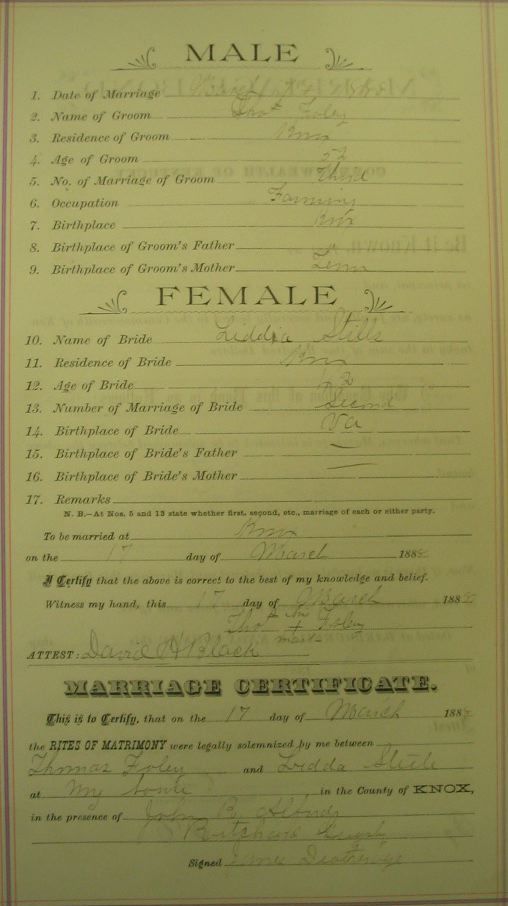 MALE
1. Date of Marriage March
2. Name of Groom Thos Foley
3. Residence of Groom Knox
4. Age of Groom
5. No. of Marriage of Groom Third
6. Occupation Farming
7. Birthplace Knox
8. Birthplace of Groom's Father
9. Birthplace of Groom's Mother Tenn
FEMALE
10. Name of Bride Liddia Stills
11. Residence of Bride Knox
12. Age of Bride
13. Number of Marriage of Bride Second
14. Birthplace of Bride Va
15. Birthplace of Bride's Father —
16. Birthplace of Bride's Mother —
17. Remarks
N. B.—At Nos. 5 and 13 state whether first, second, etc., marriage of each or either party.
To be married at Knox
on the 17 day of March 188
I Certify that the above is correct to the best of my knowledge and belief.
Witness my hand, this 17 day of March 188
Thos his + Foley
mark
ATTEST: David H Black
MARRIAGE CERTIFICATE.
This is to Certify, that on the 17 day of March 188
the RITES OF MATRIMONY were legally solemnized by me between
Thomas Foley and Lidda Stils
at my house in the County of KNOX,
in the presence of John B
Signed James